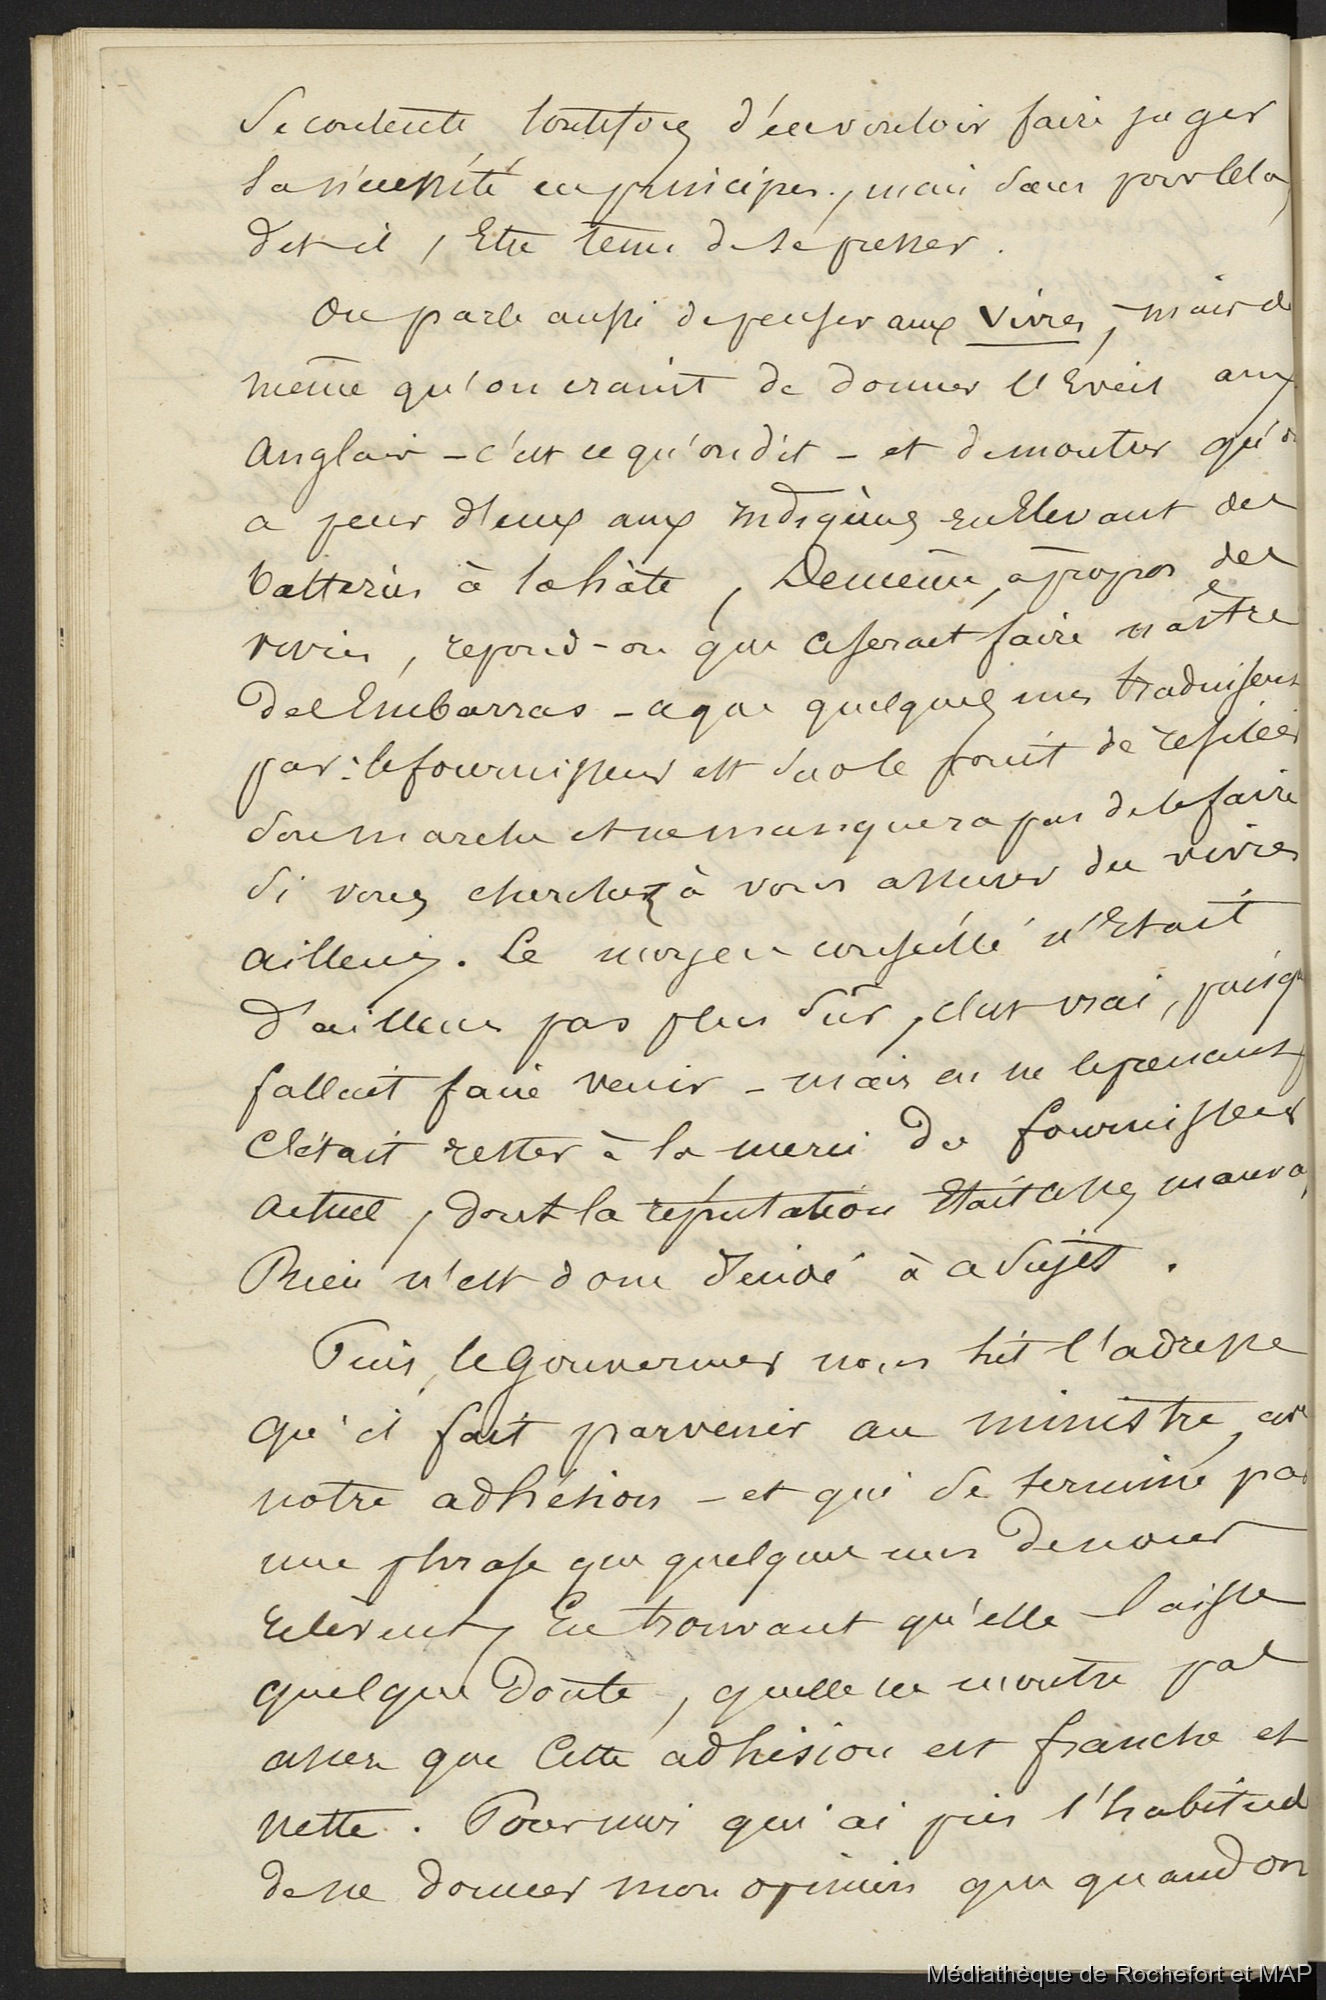 se contente toutefois d'en vouloir faire juger
la nécessité en principe, mais sans pour cela,
dit-il, être tenu de se presser.
On parle aussi de penser aux vivres, mais de
même qu'on craint de donner l'éveil aux
Anglais - c'est ce qu'on dit - et de montrer qu'on
a peur d'eux aux indigènes en élevant des
batteries à la hâte, De même, à propos des
vivres, répond-on que ce serait faire naître
des embarras - ce que quelques uns traduisent
par : le fournisseur est sur le point de résilier
son marché et ne manquera pas de le faire
si vous cherchez à vous assurer des vivres
ailleurs. Le moyen conseillé n'était
d'ailleurs pas plus sûr, c'est vrai, puisqu'
fallait faire venir - mais en ne le prenant
c'était rester à la merci du fournisseur
actuel, dont la réputation était assez mauva
Rien n'est donc décidé à ce sujet.
Puis, le gouverneur nous lit l'adresse
qu'il fait parvenir au ministre, avec
notre adhésion - et qui se termine par
une phrase que quelques uns de nous
relèvent, en trouvant qu'elle laisse
quelque doute, qu'elle ne montre pas
assez que cette adhésion est franche et
nette. Pour moi qui ai pris l'habitud
de ne donner mon opinion que quand on
Médiathèque de Rochefort et MAP